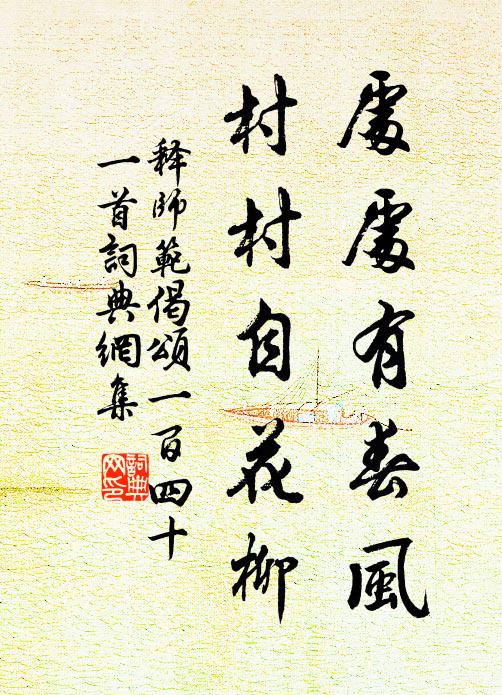 處處有春風
村村自花柳
释師範偈頌一百四十
一首詞典網集
詞典
网印